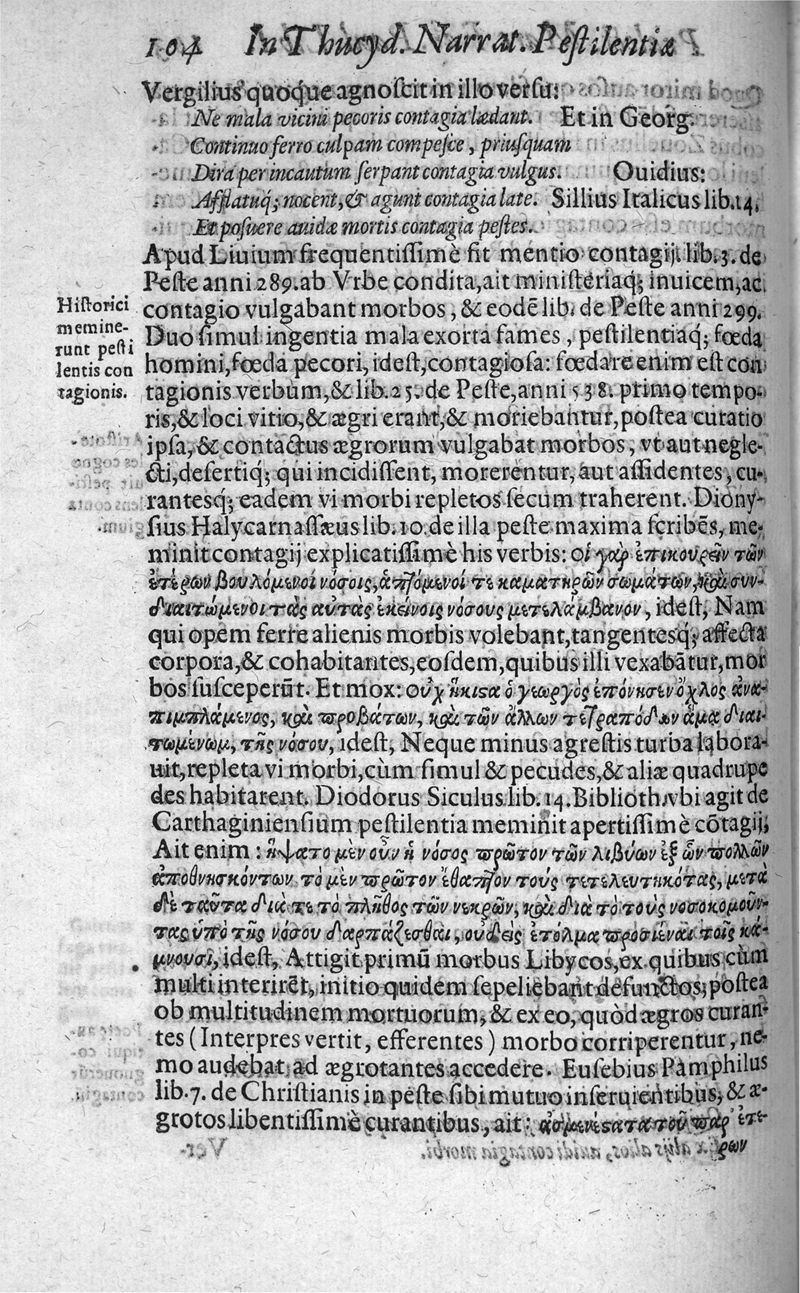 104 In Thucyd. Narrat. Pestilentiæ
Vergilius quoque agnoscit in illo versu:
Ne mala vicini pecoris contagia lædant. Et in Georg.
Continuo ferro culpam compesce, priusquam
Dira per incautum serpant contagia vulgus. Ouidius:
Afflatuq; nocent, & agunt contagia late. Sillius Italicus lib. 14.
Et posuere auidæ mortis contagia pestes.
Apud Liuium frequentissimè fit mentio contagij. lib. 3. de
Peste anni 289. ab Vrbe condita, ait ministeriaq; inuicem, ac
contagio vulgabant morbos, & eodē lib. de Peste anni 299.
Duo simul ingentia mala exorta fames, pestilentiaq; fœda
homini, fœda pecori, idest, contagiosa: fœdare enim est con
tagionis verbum, & lib. 25. de Peste, anni 538. primo tempo-
ris, & loci vitio, & ægri erant, & moriebantur, postea curatio
ipsa, & contactus ægrorum vulgabat morbos, vt aut negle-
cti, desertiq; qui incidissent, morerentur, aut assidentes, cu-
rantesq; eadem vi morbi repletos secum traherent. Diony-
sius Halycarnassæus lib. 10. de illa peste maxima scribēs, me-
minit contagij explicatissimè his verbis: οἱ γὰρ ἐπικουρεῖν τῶν
ἑτέρων βουλόμενοι νόσοις, ἁπτόμενοι τε καματηρῶν σωμάτων, καὶ συν-
διαιτώμενοι τὰς αὐτὰς ἐκείνοις νόσους μετελάμβανον, idest, Nam
qui opem ferre alienis morbis volebant, tangentesq; affecta
corpora, & cohabitantes, eosdem, quibus illi vexabātur, mor
bos susceperūt. Et mox: οὐχ ἥκιστα ὁ γεωργὸς ἐπόνησεν ὄχλος ἀνα-
πιμπλάμενος, καὶ προβάτων, καὶ τῶν ἄλλων τετραπόδων ἅμα διαι-
τωμένωμ, τῆς νόσου, idest, Neque minus agrestis turba labora-
uit, repleta vi morbi, cùm simul & pecudes, & aliæ quadrupe
des habitarent. Diodorus Siculus lib. 14. Biblioth. vbi agit de
Carthaginiensium pestilentia meminit apertissimè cōtagij,
Ait enim: ἥψατο μὲν οὖν ἡ νόσος πρῶτον τῶν λιβύων ἐξ ὧν πολλῶν
ἀποθνησκόντων τὸ μὲν πρῶτον ἔθαπτον τοὺς τετελευτηκότας, μετὰ
δὲ ταῦτα διά τε τὸ πλῆθος τῶν νεκρῶν, καὶ διὰ τὸ τοὺς νοσοκομοῦν-
τας ὑπὸ τῆς νόσου διαρπάζεσθαι, οὐδεὶς ἐτόλμα προσιέναι τοῖς κά-
μνουσι, idest, Attigit primū morbus Libycos, ex quibus cùm
multi interirēt, initio quidem sepeliebant defunctos; postea
ob multitudinem mortuorum, & ex eo, quòd ægros curan-
tes (Interpres vertit, efferentes) morbo corriperentur, ne-
mo audebat ad ægrotantes accedere. Eusebius Pamphilus
lib. 7. de Christianis in peste sibi mutuo inseruientibus, & æ-
grotos libentissimè curantibus, ait: ἀσμενέστατα τοῦ παρ' ἑτέ-
ρων
Historici
memine-
runt pesti
lentis con
tagionis.